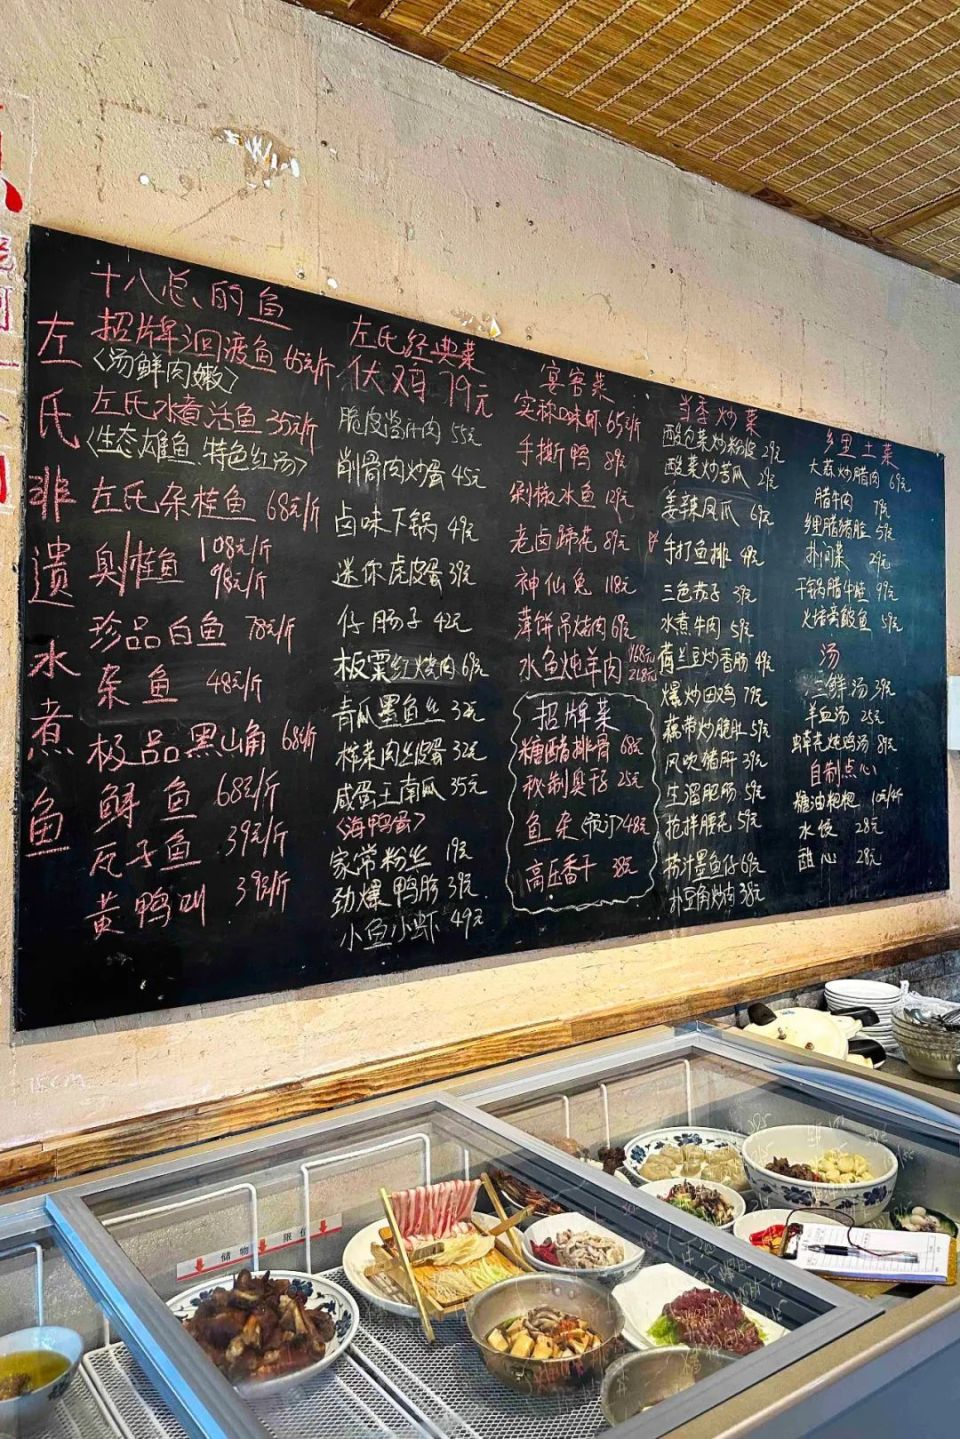 左氏非遗水煮鱼
十八总的鱼
招牌洄渡鱼 65元/斤
〈汤鲜肉嫩〉
左氏水煮活鱼 35元/斤
〈生态雄鱼、特色红汤〉
左氏杂桂鱼 68元/斤
臭桂鱼 108元/斤
98元/斤
珍品白鱼 78元/斤
杂鱼 48元/斤
极品黑山角 68元/斤
鲟鱼 68元/斤
瓦子鱼 39元/斤
黄鸭叫 39元/斤
左氏经典菜
伏鸡 79元
脆皮酱汁肉 55元
削骨肉炒蛋 45元
卤味下锅 49元
迷你虎皮蛋 39元
仔肠子 42元
板栗红烧肉 69元
青瓜墨鱼丝 32元
榨菜肉丝皮蛋 32元
咸蛋王南瓜 35元
〈海鸭蛋〉
家常粉丝 19元
劲爆鸭肠 39元
小鱼小虾 49元
宴客菜
实称口味虾 65元/斤
手撕鸭 89元
剁椒水鱼 129元
老卤蹄花 89元
神仙兔 118元
薄饼吊烧肉 69元
水鱼炖羊肉 168元
218元
招牌菜
糖醋排骨 68元
秋制臭干 25元
鱼杂(预订) 48元
高压香干 38元
当季炒菜
酸包菜炒粉皮 29元
酸菜炒苦瓜 29元
姜辣凤爪 69元
手打鱼排 48元
三色茄子 39元
水煮牛肉 59元
荷兰豆炒香肠 49元
爆炒田鸡 79元
藕带炒脆肚 59元
风吹猪肝 39元
生溜肥肠 59元
抢拌腰花 59元
捞汁墨鱼仔 69元
扑豆角炒肉 38元
乡里土菜
大蒜炒腊肉 69元
腊牛肉 79元
乡里腊猪脸 59元
扑闷菜 29元
干锅腊牛蛙 99元
火焙翁鲅鱼 59元
汤
三鲜汤 39元
羊血汤 25元
虫草花炖鸡汤 89元
自制点心
糖油粑粑 10元/4个
水饺 28元
甜心 28元
15cm
储物
限位